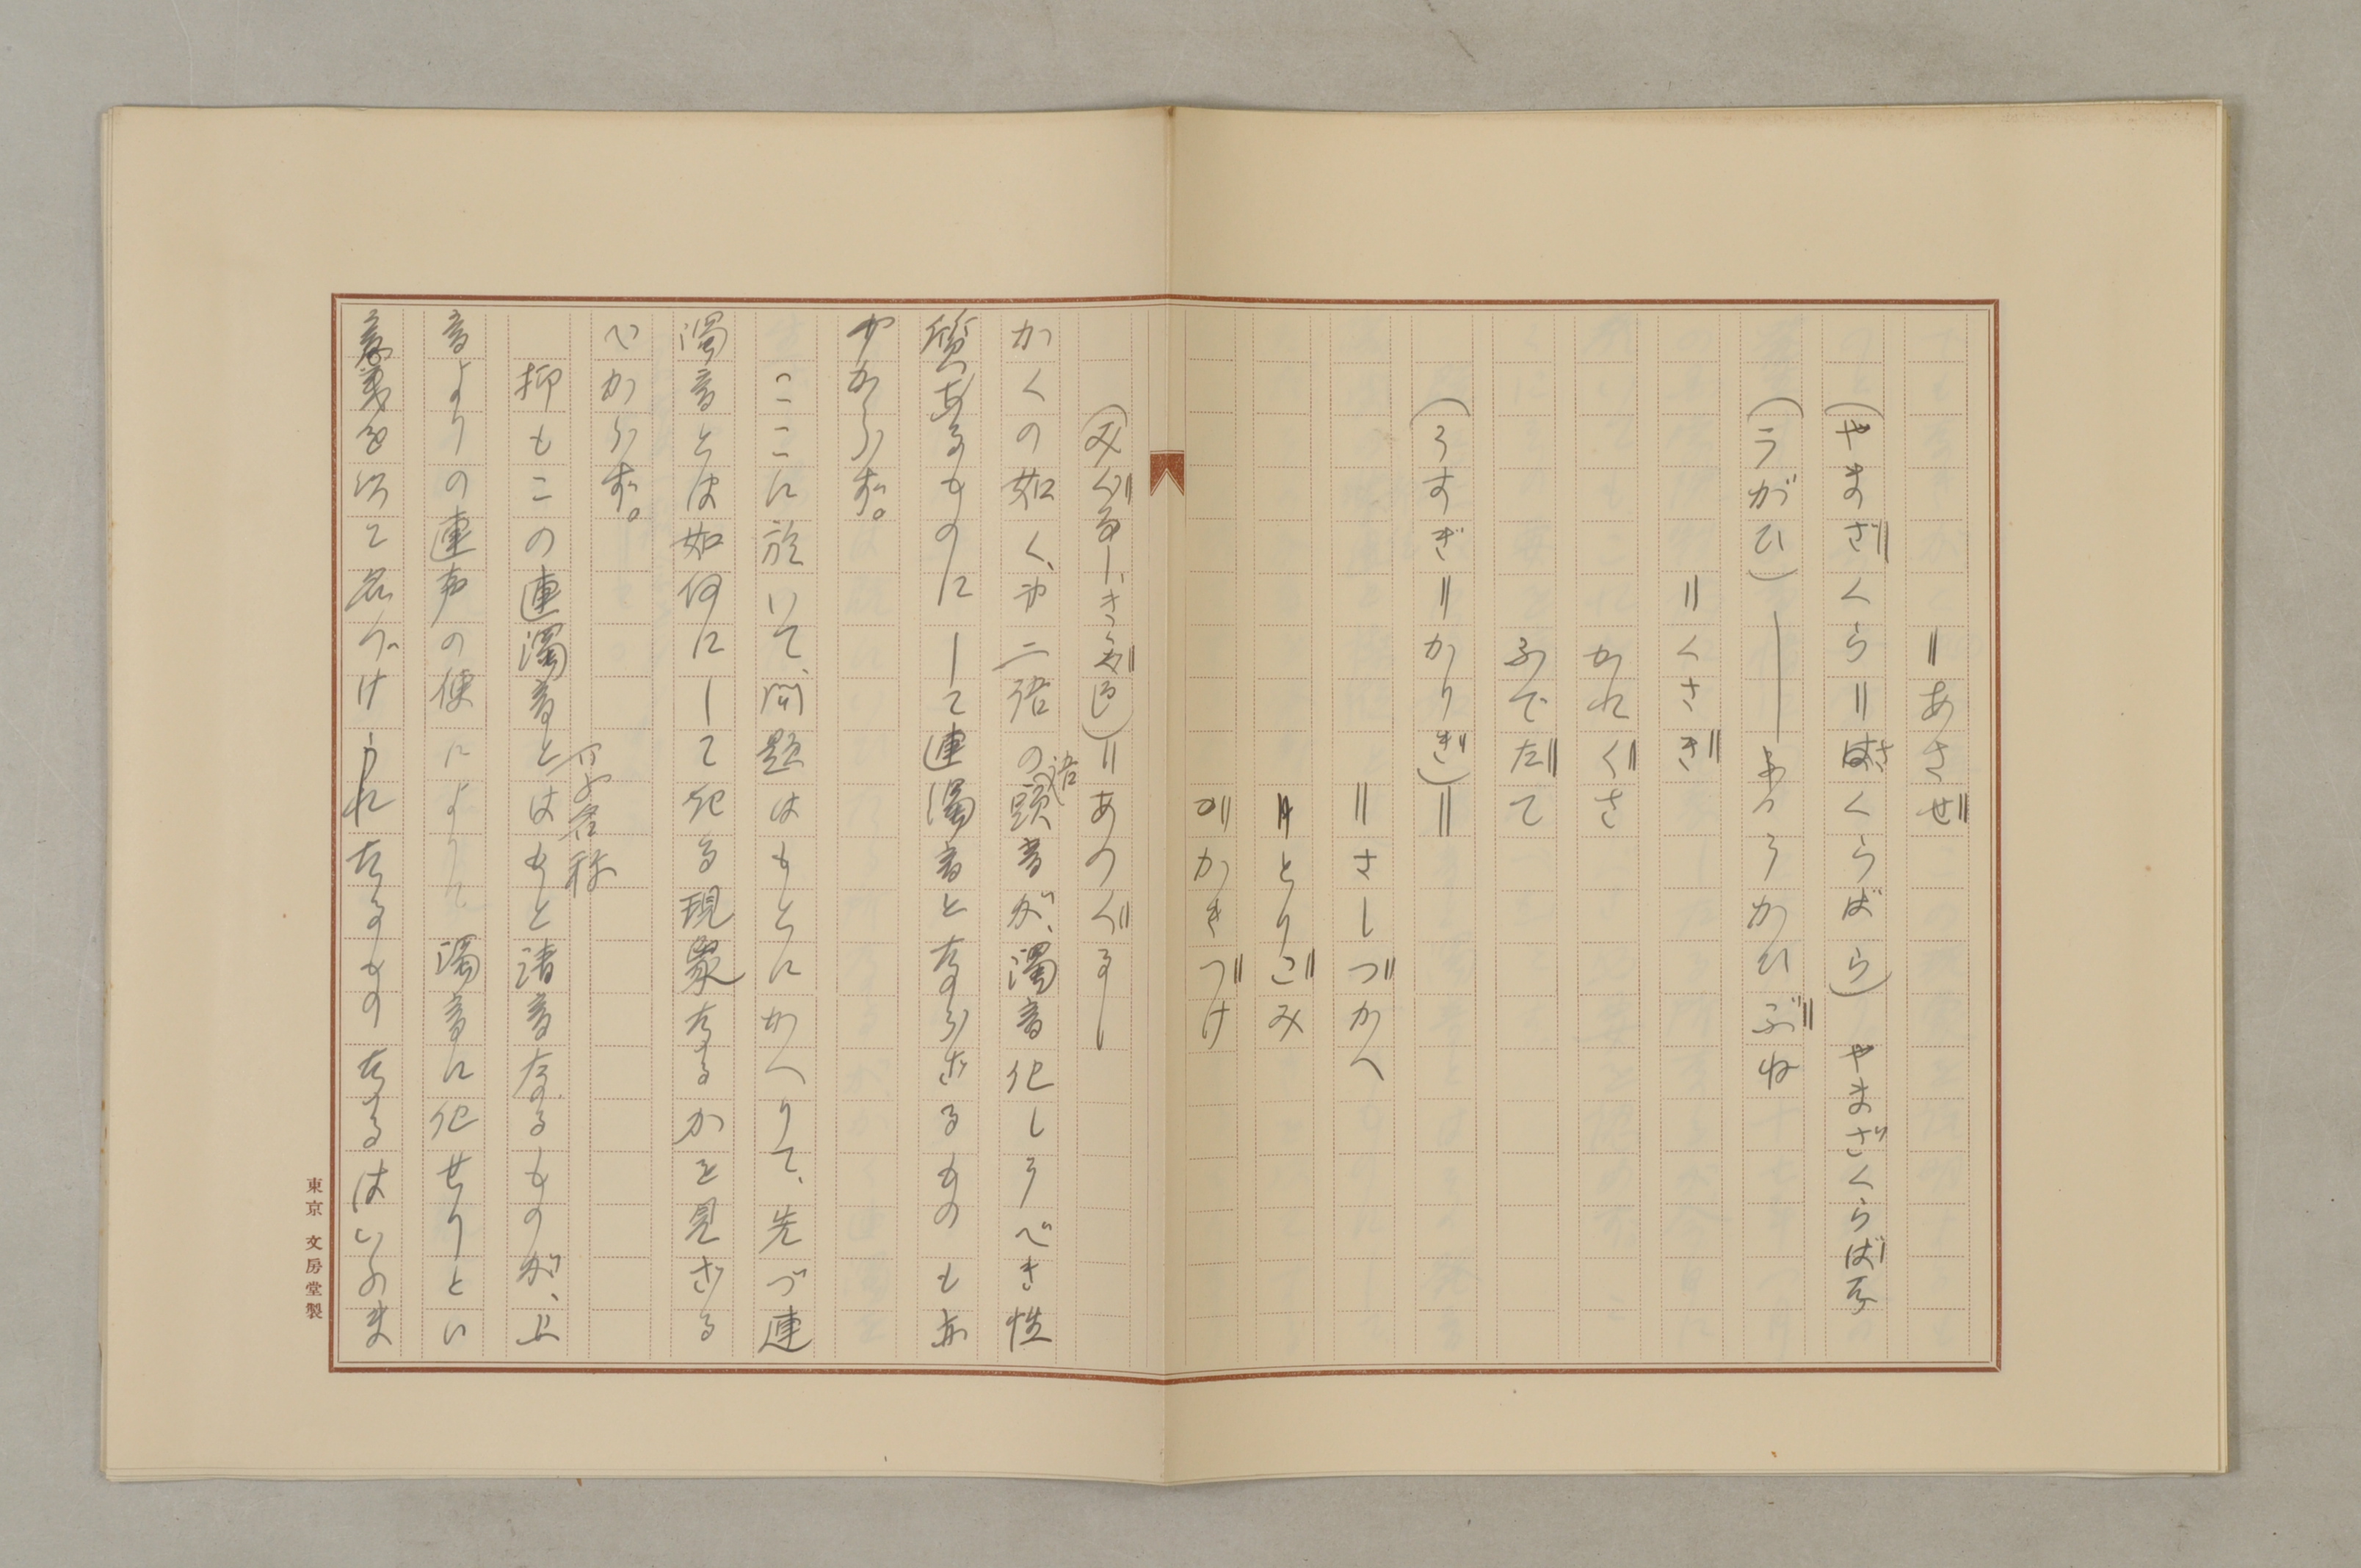 ＝あさぜ
（やまざくら＝さくらばら）　やまざくらばら
（うがひ）――うかひぶね
＝くさぎ
かれぐさ
ふでだて
（うすぎ＝かりぎ）＝
＝さしづかへ
＝とりごみ
かきづけ
＝あのぐるし
かくの如く、二語の語頭音が、濁音化しうべき性
質あるものにして連濁音とならざるものも亦
少からず。
ここに於いて、問題はもとにかへりて、先づ連
濁音とは如何にして起る現象なるかを見ざる
べからず。
抑もこの連濁音とはもと清音なるものが、上
名称
音よりの連声の便によりて濁音に化せりとい
意義を以て名づけられたるものなるはいふま
東京　文房堂製